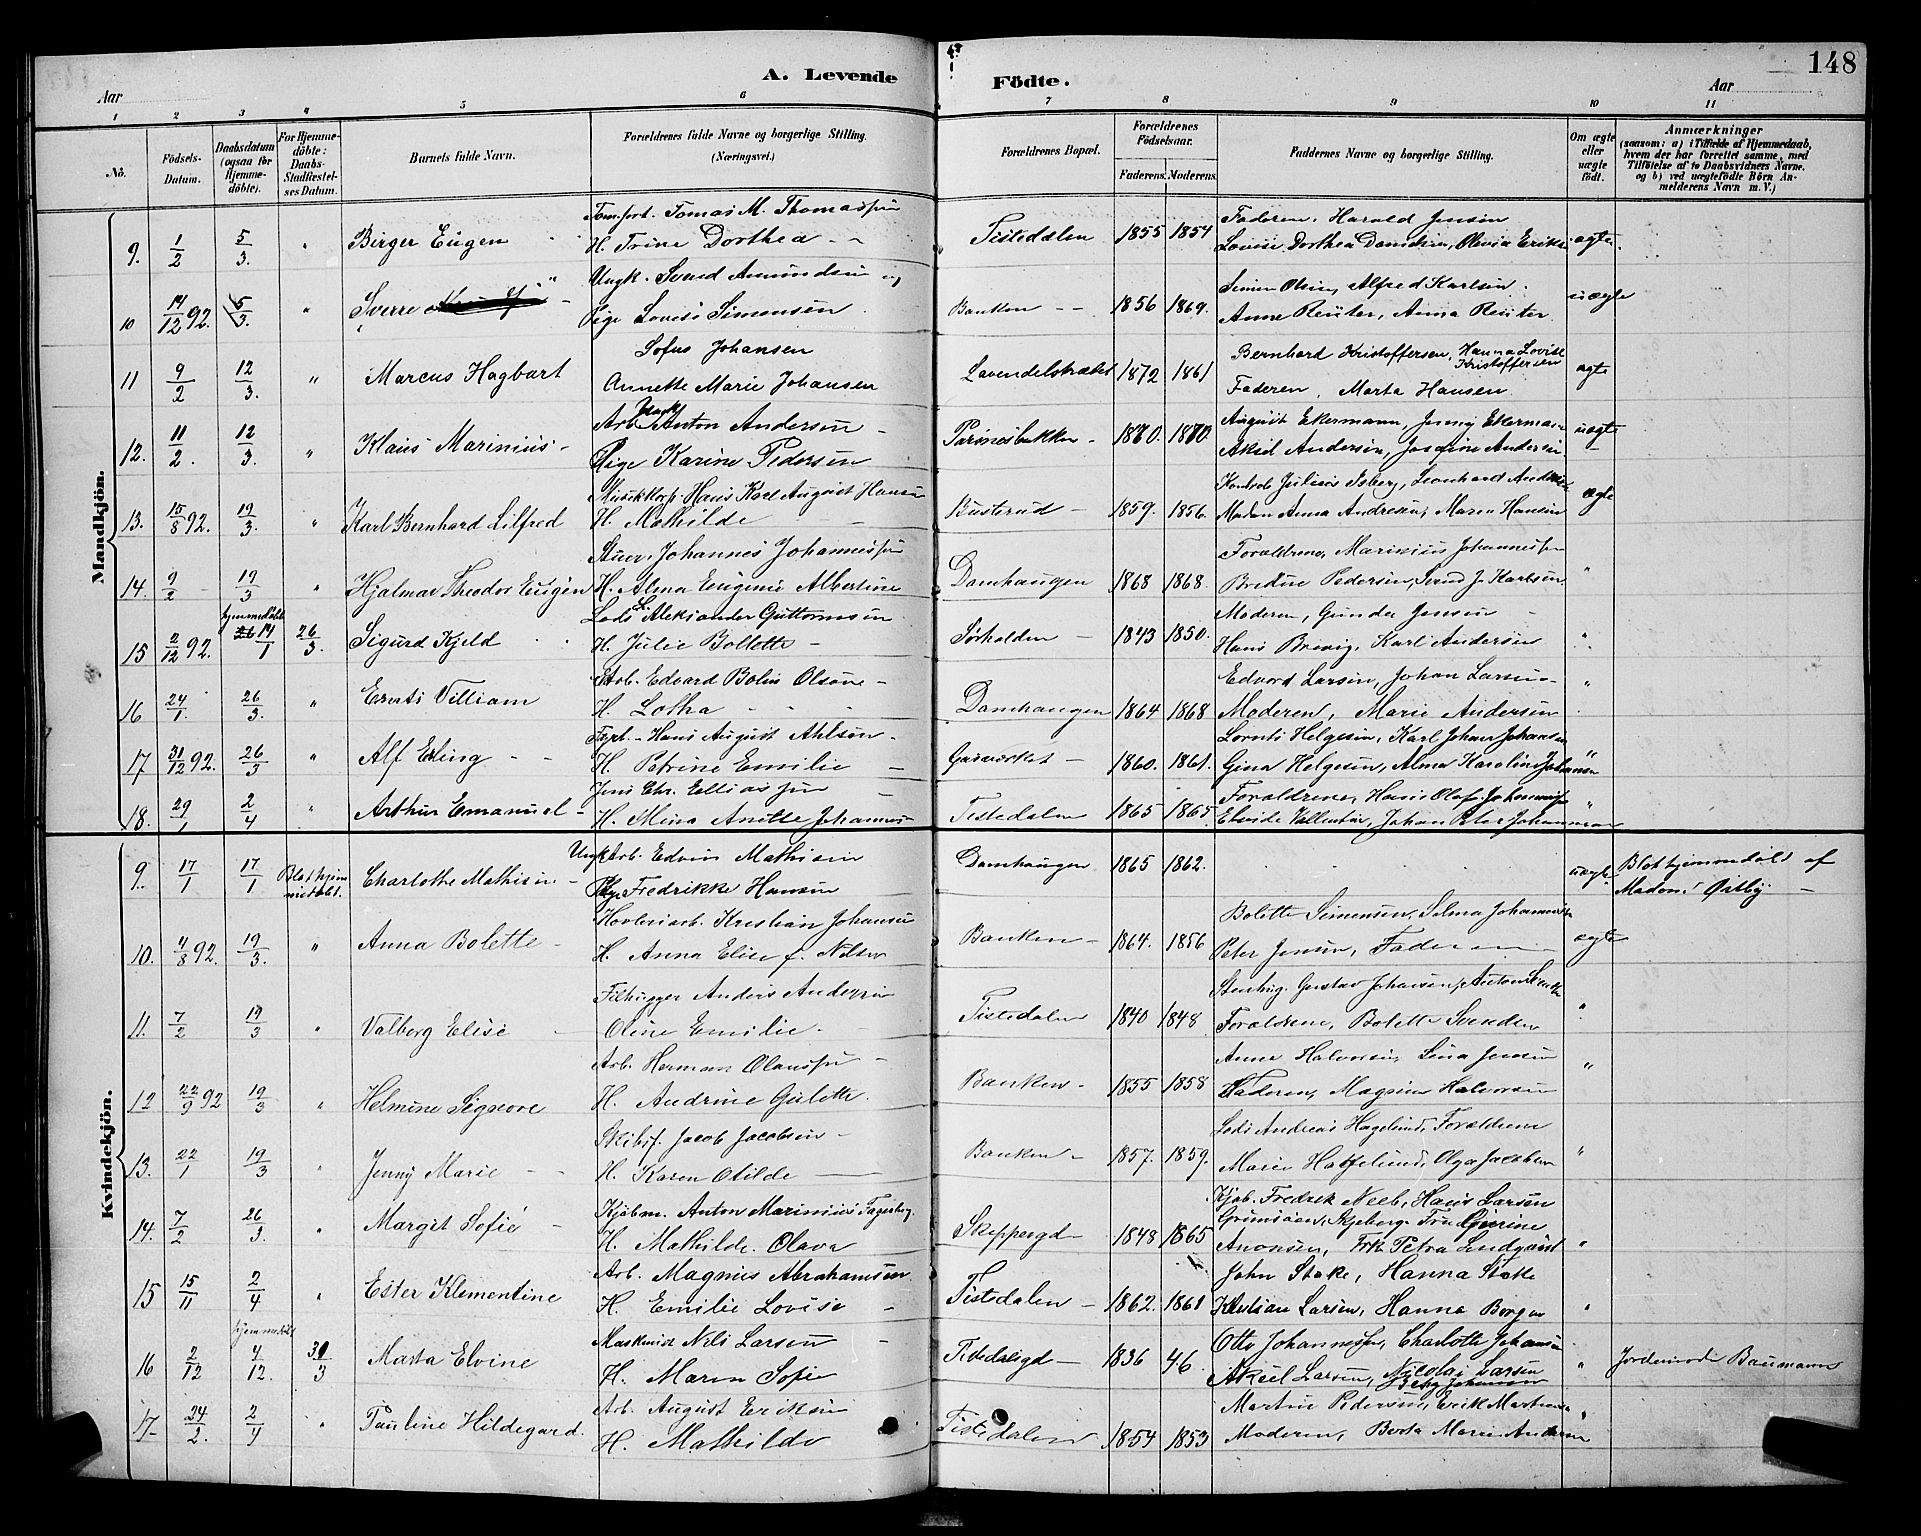 148
A. Levende Födte.
Aar
Aar
1 2 3 4 5 6 7 8 9 10 11
No.
Födsels-Datum.
Daabsdatum (ogsaa for Hjemmedöbte).
For Hjemmedöbte: Daabs-Stadfæstelses Datum.
Barnets fulde Navn.
Forældrenes fulde Navne og borgerlige Stilling. (Næringsvei.)
Forældrenes Bopæl.
Forældrenes Födselsaar.
Faderens. Moderens.
Faddernes Navne og borgerlige Stilling.
Om ægte eller uægte födt.
Anmærkninger
(saasom: a) i Tilfælde af Hjemmedaab, hvem der har forrettet samme, med Tilföielse af to Daabsvidners Navne, og b) ved uægtefödte Börn Anmelderens Navn m. V.)
Mandkjön.
Tomas M. Thomassen Faderen, Harald Jensen
9. 1/2 5/3 " Birger Eugen H. Trine Dorthea Tistedalen 1855 1854 Lovise Dorthea Olivia ægte
Ungk. Svend Amundsen og Simen Olsen, Alfred Karlsen
10 14/12 92. 5/3 " Sverre Pige Lovise Simensen Banken 1856 1869. Anne Reuter, Anna Reuter uægte
Sofus Johansen Bernhard Kristoffersen, Hanna Lovise Kristoffersen
11 9/2 12/3. " Marcus Hagbart Annette Marie Johansen Lavendelstrædet 1872 1861 Faderen, Marta Hansen ægte
Arb. Anton Andersen August Ekermann, Jenny Ekermann
12. 11/2. 12/3. " Klaus Marinius Pige Karine Pedersen 1870. 1870. Aksel Andersen, Josefine Andersen uægte
Hans Karl August Hansen Julius Isberg, Leonhard Andersen
13. 15/8 92. 19/3. " Karl Bernhard Lilfred H. Mathilde Busterud 1859. 1856. Madam Anna Andresen, Maren Hansen ægte
Stuer. Johannes Johannessen Forældrene, Marinius Johannessen
14. 9/2 19/3 " Hjalmar Theodor Eugen H. Alma Eugenie Albertine Damhaugen 1868 1868. Pedersen, Svend J. Karlsen "
hjemmedöbt Lods Aleksander Guttormsen Moderen, Gunda Jensen
15 2/12 92. 14/1 26/3. Sigurd Kjeld H. Julie Bollette Sørhalden 1843 1850. Hans Brevig, Karl Andersen "
Arb. Edvard Bolin Olsen Edvard Larsen, Johan Larsen
16 24/1. 26/3. " Ernts Villiam H. Lotha Damhaugen 1864 1868 Moderen, Marie Andersen "
Hans August Ahlsen Lornts Helgesen, Karl Johan Johansen
17 31/12 92. 26/3 " Alf Erling H. Petrine Emilie Gasværket 1860. 1861. Gina Helgesen, Alma Karoline Johansen "
Jens Chr. Elliassen Forældrene, Hans Olaf Johannessen
18. 29/1 2/4 " Arthur Emanuel H. Mina Anette Johannes Tistedalen 1865 1865 Johan Peter "
Kvindekjön.
Ungk. Arb. Edvin Mathisen
9. 17/1 17/1 Blot hjemmedöbt. Charlotte Mathisen Pige Fredrikke Hansen Damhaugen 1865 1862. uægte Blot hjemmedöbt af Madam Østby
Høvleriarb. Kristian Johansen Bolette Simensen, Selma Johannessen
10. 4/8 92. 19/3. " Anna Bolette H. Anna Elise f. Nilsen Banken 1864. 1856 Peter Jensen, Faderen ægte
Filhugger Anders Andersen Stenhug. Gustav Johansen, Anton
11. 7/2 19/3 " Valborg Elise Oline Emilie Tistedalen 1840 1848 Forældrene, Bolette Svendsen "
Arb. Herman Olaussen Anna Halvorsen, Lina Jensen
12 22/9 92 19/3 " Helmine Signore H. Andrine Gulette Banken 1855 1858 Faderen, Magnus Halvorsen "
Skibsf. Jacob Jacobsen Lods Andreas Hagelund, Forældrene
13. 22/1 19/3 " Jenny Marie H. Karen Otilde Banken 1857. 1859. Marie Olga Jacobsen "
Kjøbm. Anton Marinius Fagerberg Kjøb. Fredrik Neeb, Hans Larsen
Grimsøen, Skjeberg. Fru Gurine
14. 7/2 26/3. " Margit Sofie H. Mathilde Olava Skeppergd 1848 1865 Anonsen, Frk Petra Lindqvist "
Arb. Magnus Abrahamsen John Stake, Hanna Stake
15 15/11 2/4 " Ester Klementine H. Emilie Lovise Tistedalen 1862. 1861 Kristian Larsen, Hanna Borgen "
hjemmedöbt Maskmist Nils Larsen Otto Johannessen, Charlotte Johansen
16 2/12 4/12. 31/3 Marta Elvine H. Maren Sofie Tistedalsgd 1836 46. Aksel Larsen, Nicolai Larsen " Jordemoder Baumann
Betsy Johansen
Arb. August Eriksen Martin Pedersen, Erik Martinsen
17 24/2. 2/4 " Pauline Hildegard. H. Mathilde Tistedalen 1854 1853 Moderen, Berta Marie Andersen "